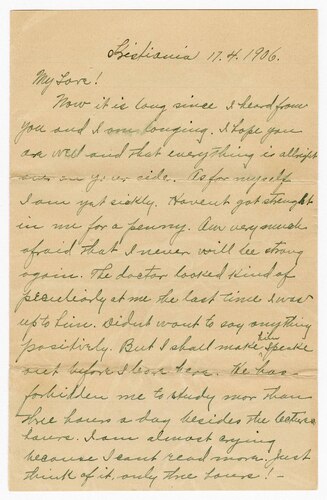 Kristiania 17.4.1906.
My Love!
Now it is long since I heard from
you and I am longing. I hope you
are well and that everything is allright
over on your side. As for myself
I am yet sickly. Havent got strenght
in me for a penny. Am very much
afraid that I never will be strong
again. The doctor looked kind of
peculiarly at me the last time I was
up to him. Didnt want to say anything
positively. But I shall make him speake
out before I leave here. He has
forbidden me to study mor than
three hours a day besides the lecture
hours. I am almost crying
because I cant read more. Just
think of it, only three hours! -